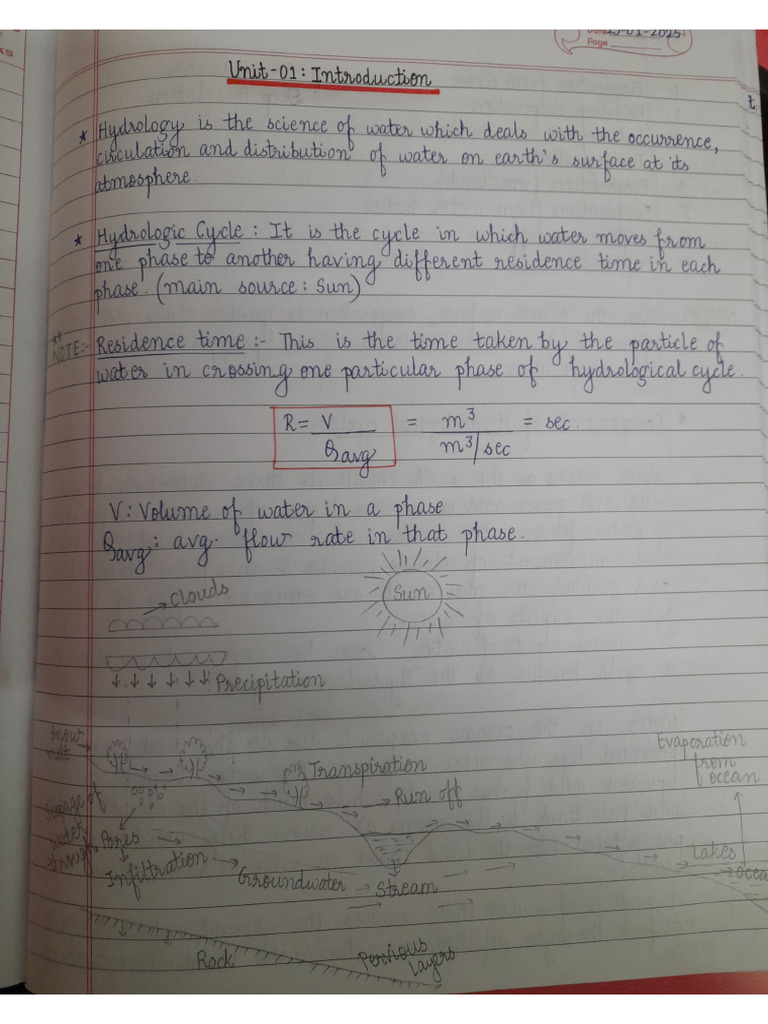 25-01-2025
Page
Unit-01: Introduction
* Hydrology is the science of water which deals with the occurrence,
circulation and distribution of water on earth's surface at its
atmosphere.
* Hydrologic Cycle: It is the cycle in which water moves from
one phase to another having different residence time in each
phase. (main source: Sun)
NOTE:- Residence time:- This is the time taken by the particle of
water in crossing one particular phase of hydrological cycle.
R = V / Qavg = m³ / m³/sec = sec.
V: Volume of water in a phase
Qavg: avg. flow rate in that phase.
Clouds
Sun
Precipitation
Snow
melt
Evaporation
from
ocean
Transpiration
Run off
Seepage of
water
through
Pores
Infiltration
Groundwater
Stream
Lakes
Rock
Pervious
Layers